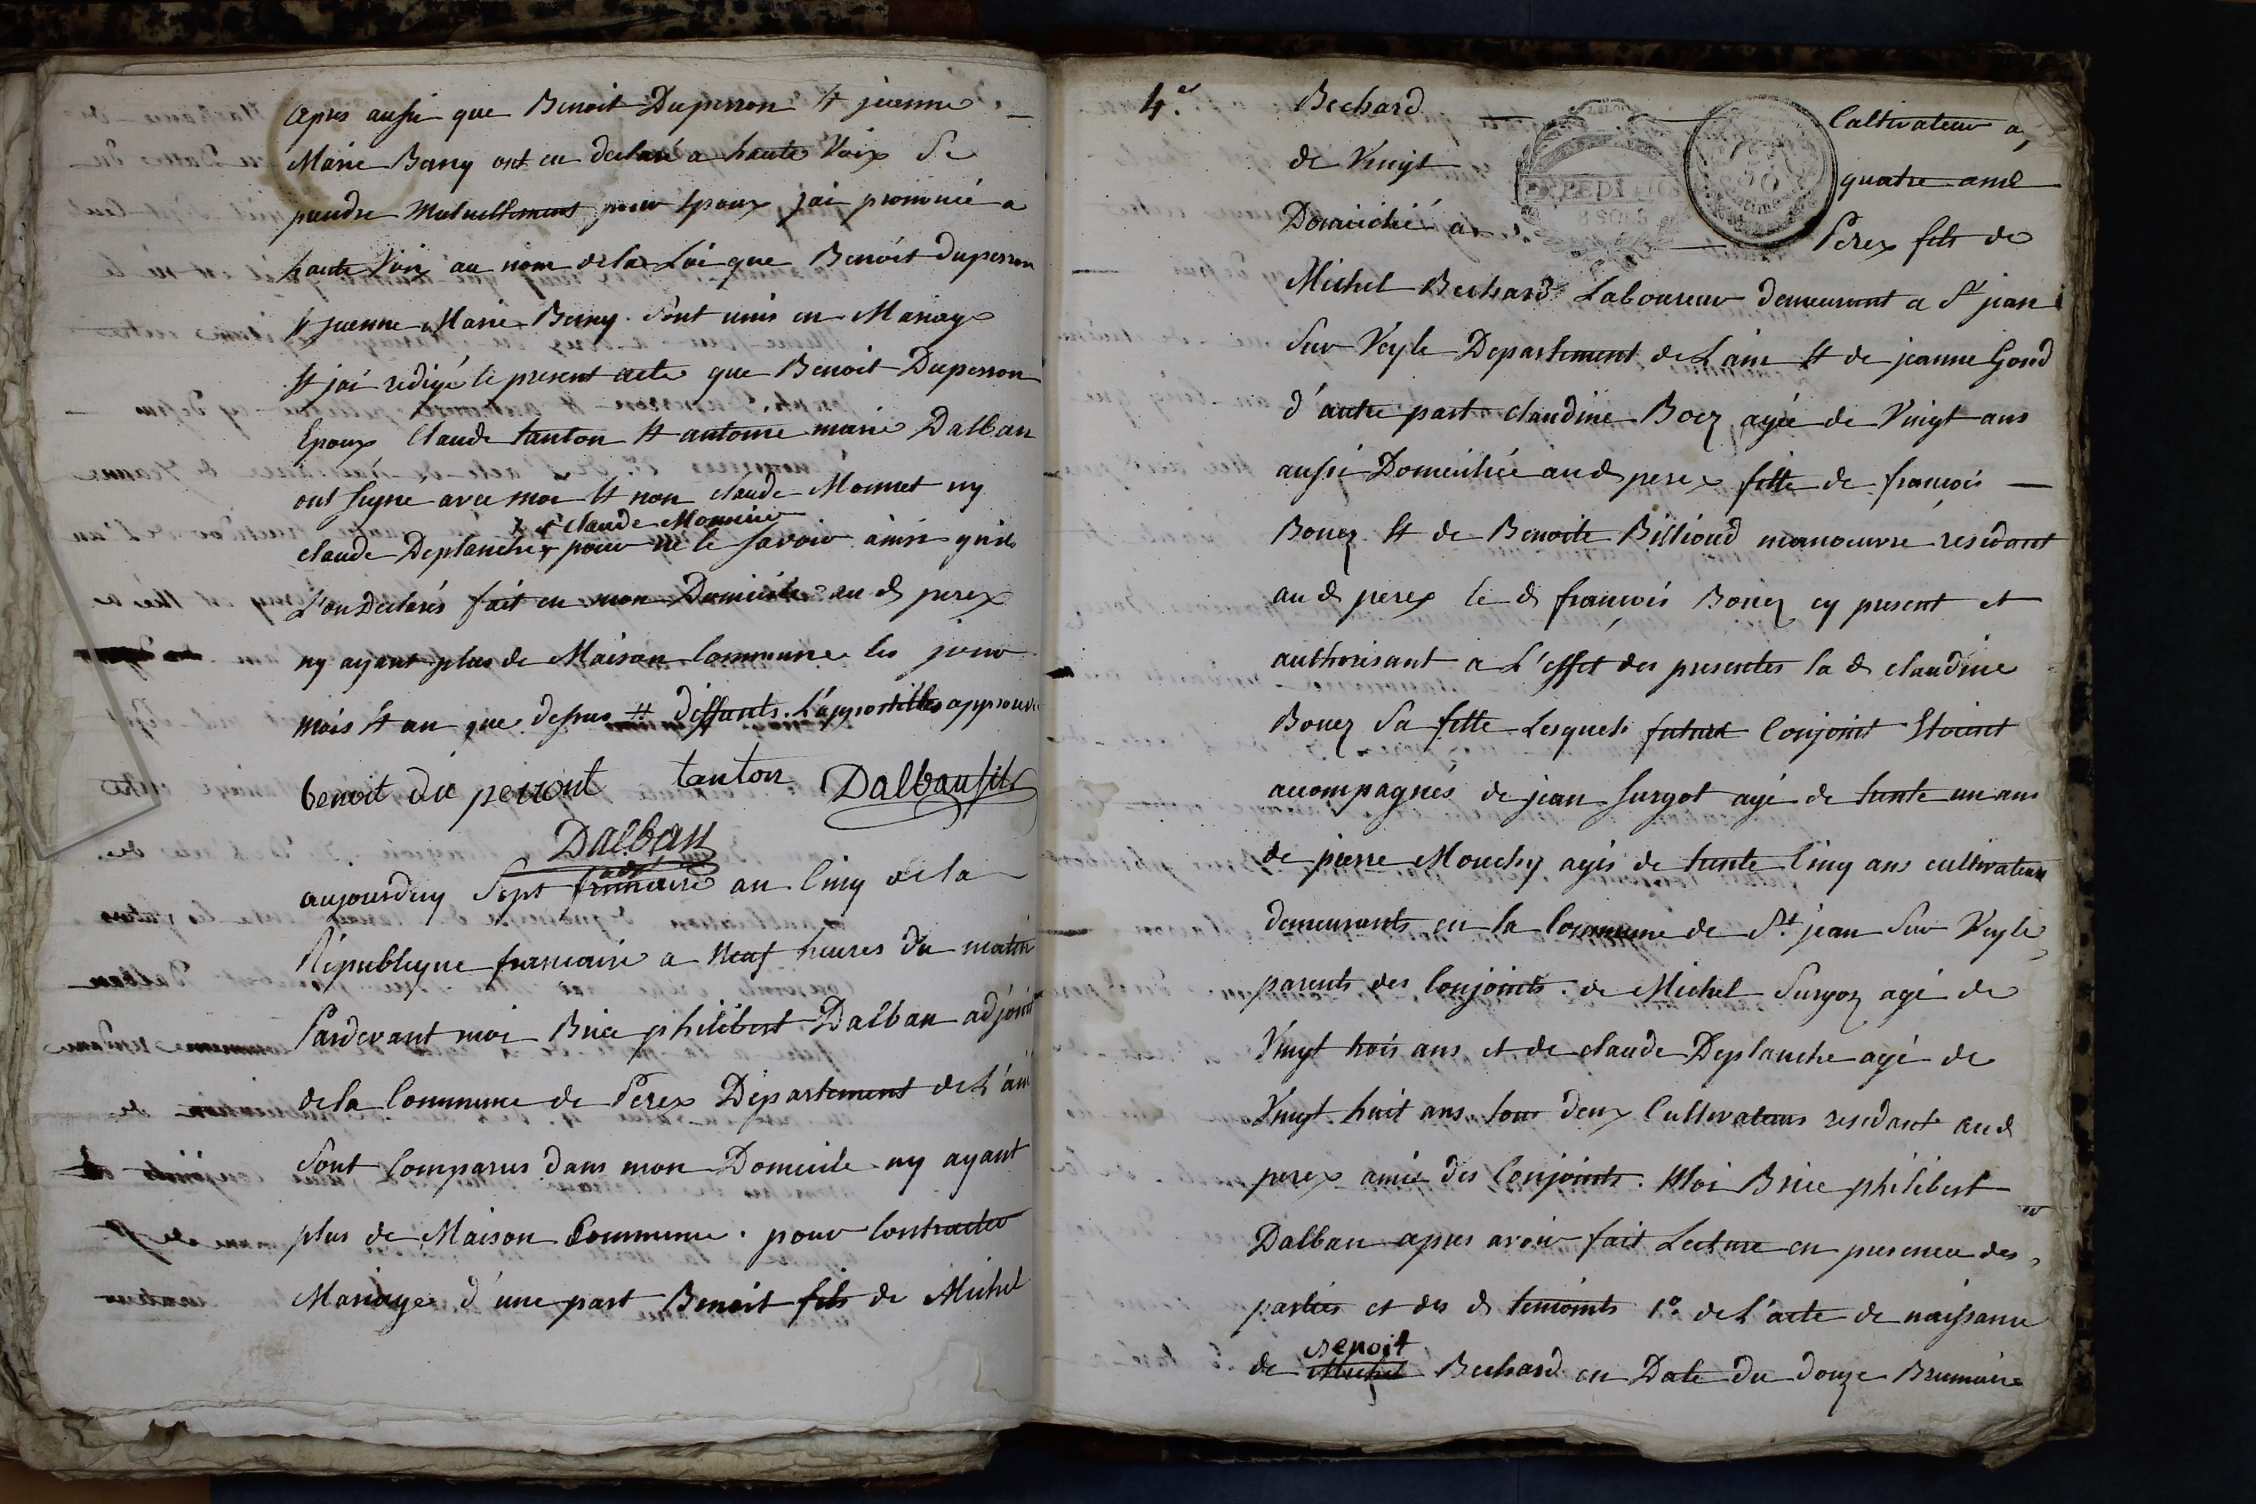 apres aussi que Benoit Duperron & jeanne
Marie Berny ont eu declaré a haute Voix Se
prendre Mutuellement pour Epoux j'ai prononcé a
haute Voix au nom de la Loi que Benoit Duperron
& jeanne Marie Berny sont unis en Mariage
& jai redigé le present acte que Benoit Duperron
Epoux Claude tanton & antoine marie Dalban
ont signe avec moi & non claude Monnet ny
& claude Monnier
claude Deplanche pour ne le savoir ainsi quils
L'on declarés fait en mon Domicile au d perex
ny ayant plus de Maison Commune les jour
mois & an que dessus # L'appostilles approuvé
benoit du perront tanton Dalban fils
Dalban
adj
aujourduy Sept frimaire an Cinq de la
Republique francaise a Neuf heures du matin
Pardevant moi Brice philibert Dalban adjoint
de la Commune de Perex Departement de L'ain
Sont Comparus dans mon Domicile ny ayant
plus de Maison Commune. pour Contracter
Mariage d'une part Benoit fils de Michel
4.e
Bechard Cultivateur a
de Vingt quatre ans
Domicilié a Perex fils de
Michel Bechard Laboureur demeurant a St jean
Sur Veyle Departement de Lain & de jeanne Gond
d'autre part claudine Boez agée de Vingt ans
aussi Domiciliée au d perex fille de francois
Bouez & de Benoite Billioud manoeuvre residant
au d perex le d francois Bouez cy present et
authorisant a L'effet des presentes la d claudine
Bouez Sa fille Lesquels futurs Conjoint Etoient
accompagnés de jean Surgot agé de trente un ans
de pierre Mouchy agés de trente Cinq ans cultivateurs
demeurants en la Commune de St jean Sur Veyle
parents des Conjoints. de Michel Surgoz agé de
Vingt trois ans et de claude Deplanche agé de
Vingt huit ans tous deux Cultivateurs residant au d
perex amis des Conjoints. Moi Brice philibert
Dalban apres avoir fait Lecture en presence des
parties et des d temoints 1o de L'acte de naissance
Benoit
de Michel Bechard en Date du douze Brumaire